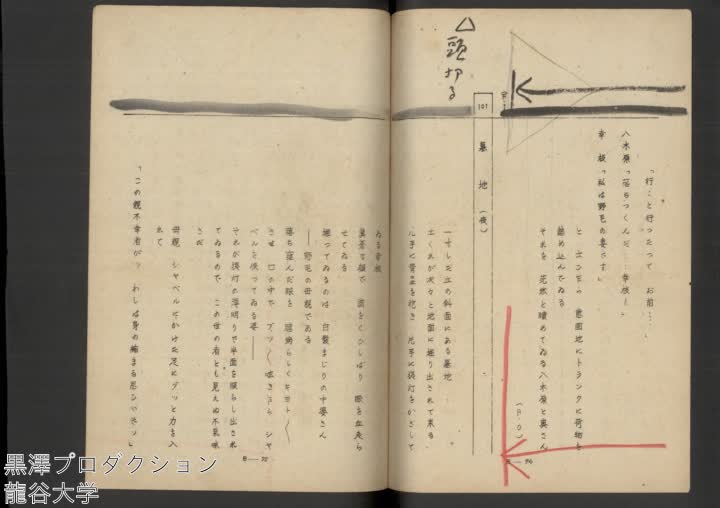 「行くと行つたつて お前……」
八木原「落ちつくんだ……幸枝!」
幸枝「私は野毛の妻です」
と ポンポン 意固地にトランクに荷物を
詰め込んでゐる
それを 茫然と瞶めてゐる八木原と奥さん
(F.O)
B—74
△頭切る
107 墓地(夜)
一寸した丘の斜面にある墓地
土くれが次々と地面に掘り出されて来る
片手に骨壺を抱き 片手に提灯をかざして
ゐる幸枝
蒼い顔で 歯をくひしばり 眼を血走ら
せてゐる
掘つてゐるのは 白髪まじりの中婆さん
——野毛の母親である
落ち窪んだ眼を
させ 口の中で ブツ〱 呟き乍ら シヤ
ベルを使つてゐる姿——
それが提灯の薄明りで半面を照らし出され
てゐるので この世の者とも見えぬ不気味
さだ
母親 シヤベルにかけた足にグツと力を入
れて
「この親不幸者が わしは身の縮まる思ひぢやツ」
B—75
黒澤プロダクション
龍谷大学